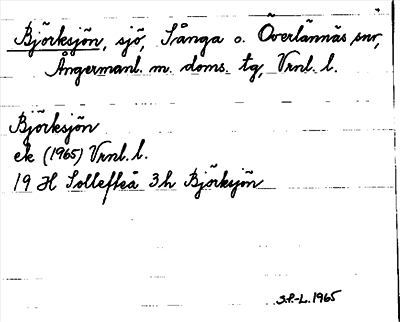 Björksjön, sjö, Sånga o. Överlännäs snr,
Ångermanl. m. doms. tg, Vrnl. l.
Björksjön
ek (1965) Vrnl. l.
19 H Sollefteå 3h Björksjön
S.P.-L. 1965